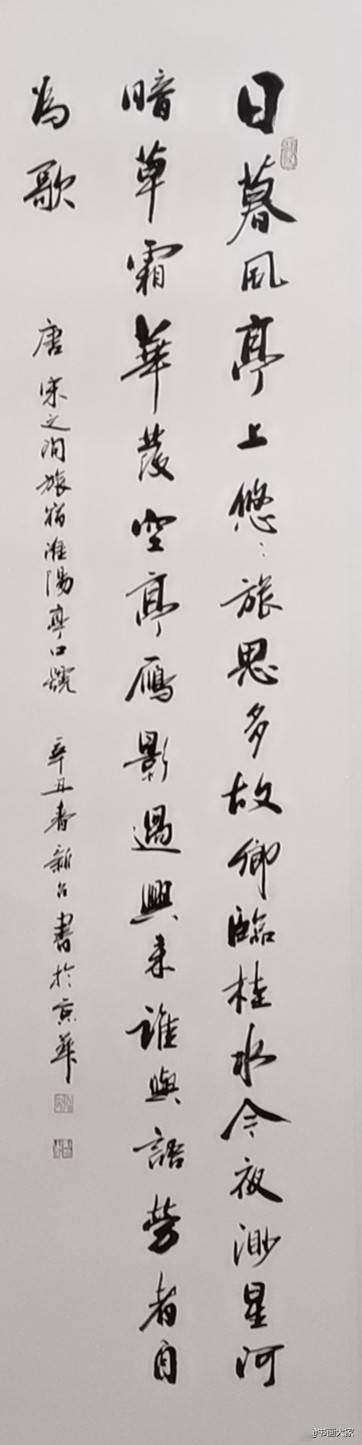 日暮风亭上悠:旅思多故鄉臨桂水今夜渺星河
暗草霜華發空亭鴈影過興来誰與語勞者自
為歌
唐宋之问旅宿淮陽亭口號 辛丑春新台書於京華
@书画大家